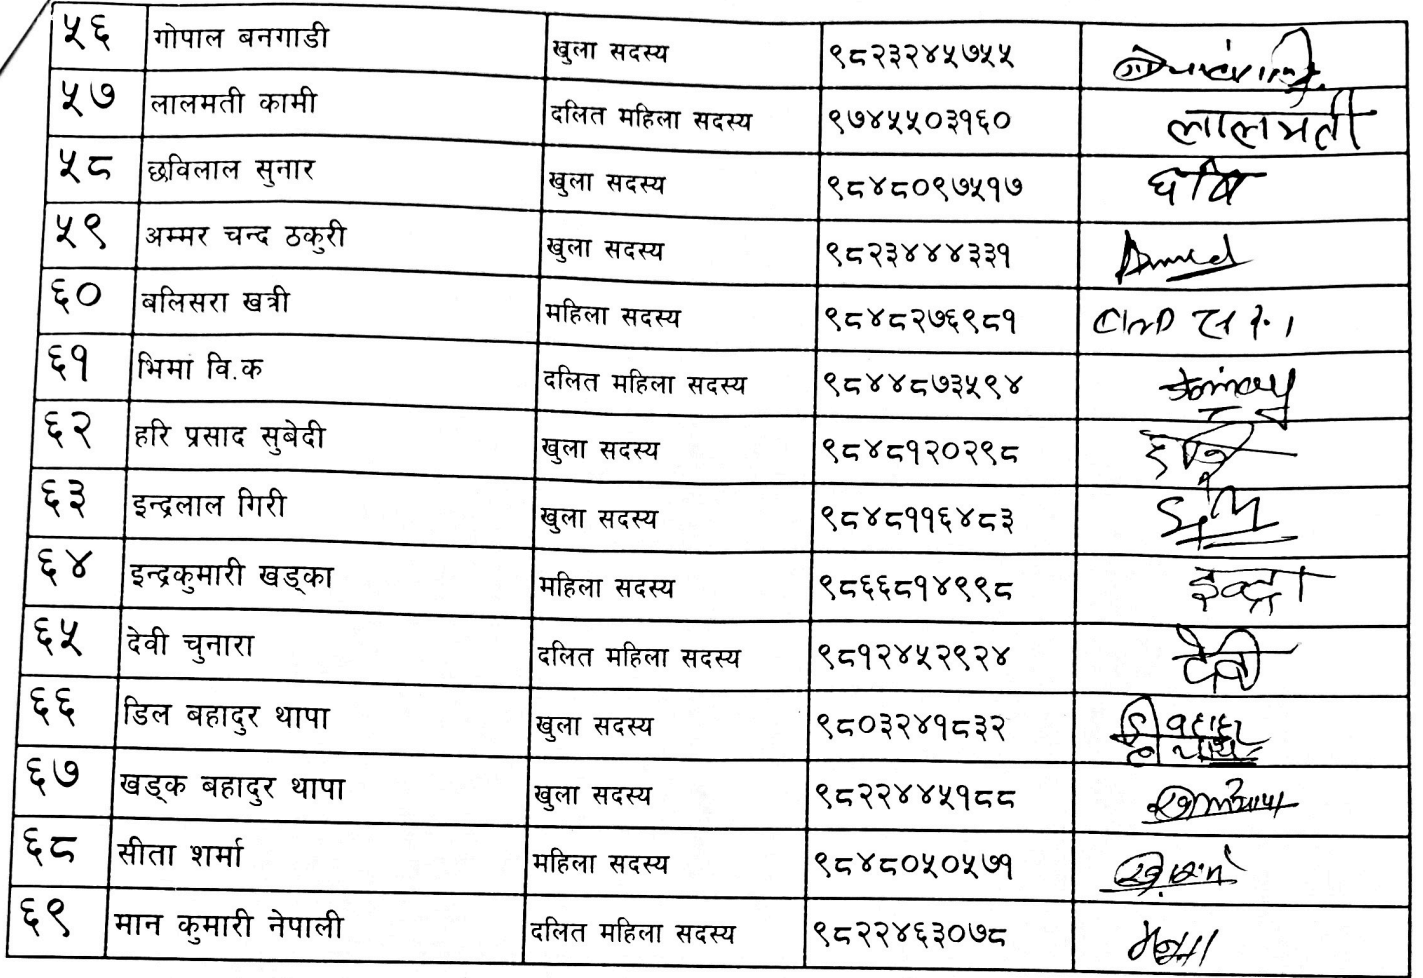 ५६ गोपाल बनगाडी खुला सदस्य ९८२३२४५७५५
५७ लालमती कामी दलित महिला सदस्य ९७४५५०३१६० लालमती
५८ छविलाल सुनार खुला सदस्य ९८४८०९७५१७
५९ अम्मर चन्द ठकुरी खुला सदस्य ९८२३४४४३३१
६० बलिसरा खत्री महिला सदस्य ९८४८२७६९८१
६१ भिमा वि.क दलित महिला सदस्य ९८४४८७३५९४
६२ हरि प्रसाद सुबेदी खुला सदस्य ९८४८१२०२९८
६३ इन्द्रलाल गिरी खुला सदस्य ९८४८११६४८३
६४ इन्द्रकुमारी खड्का महिला सदस्य ९८६६८१४९९८ इन्द्रा
६५ देवी चुनारा दलित महिला सदस्य ९८१२४५२९२४ देवी
६६ डिल बहादुर थापा खुला सदस्य ९८०३२४१८३२
६७ खड्क बहादुर थापा खुला सदस्य ९८२२४४५१८८
६८ सीता शर्मा महिला सदस्य ९८४८०५०५७१
६९ मान कुमारी नेपाली दलित महिला सदस्य ९८२२४६३०७८